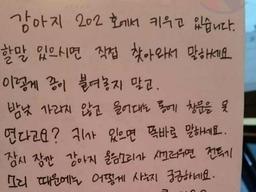 강아지 202호에서 키우고 있습니다.
할말 있으시면 직접 찾아와서 말하세요
이렇게 종이 붙여놓지 말고.
밤낮 가리지 않고 들어대는 통에 창문을 못
연다고요? 귀가 있으면 똑바로 말하세요.
잠시 잠깐 강아지 울음소리가 시끄러우면 전투기
소리 때문에는 어떻게 사는지 궁금하네요.